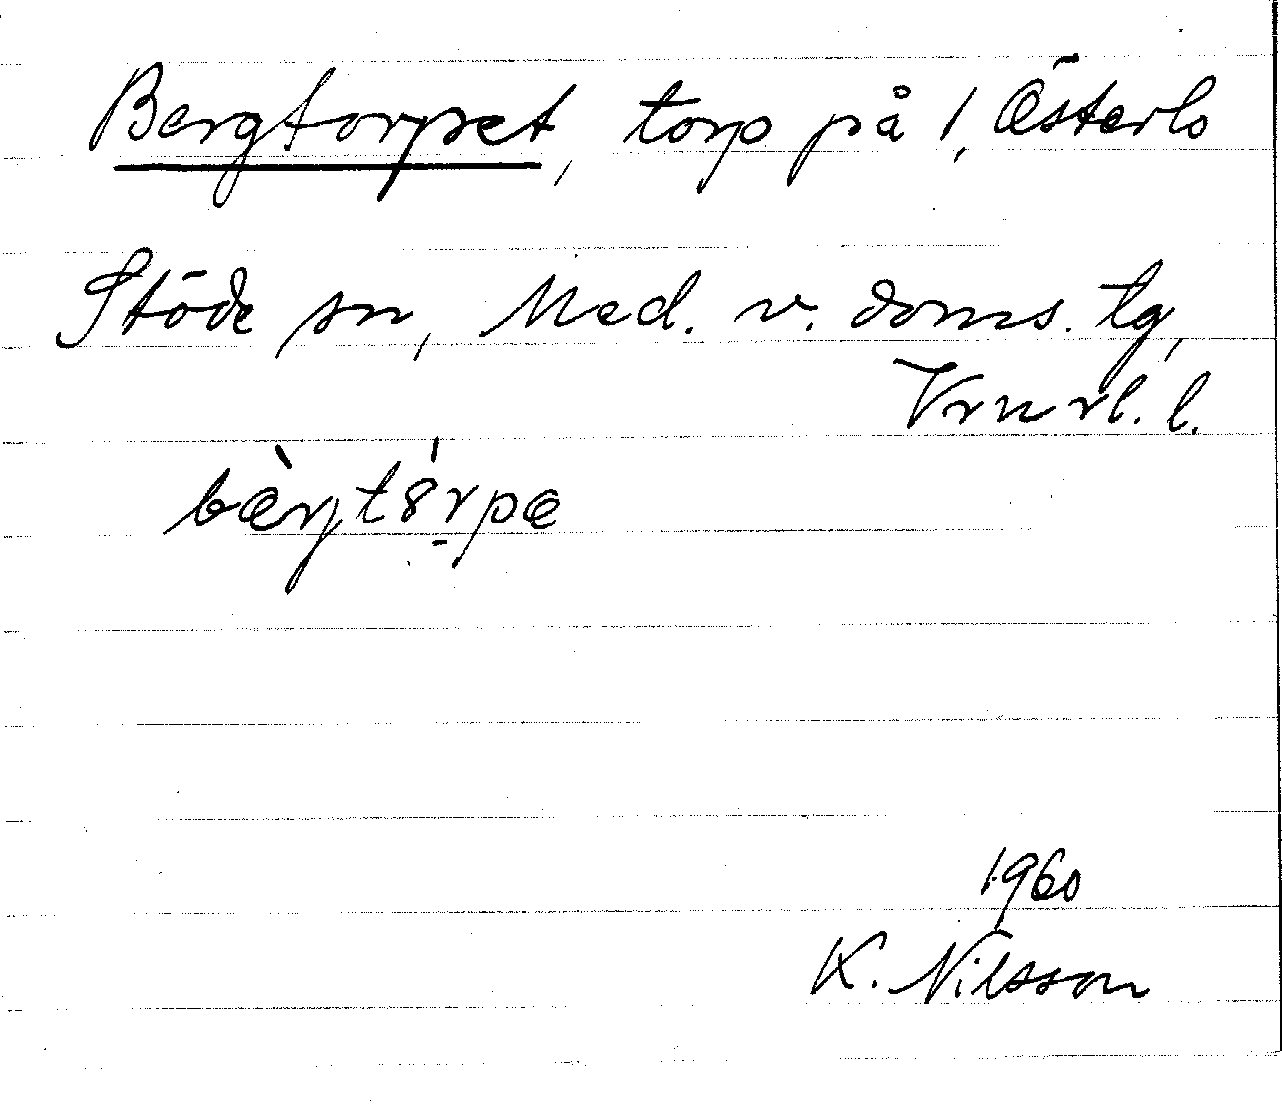 Bergtorpet, torp på 1, Österlo
Stöde sn, Med. v. doms. tg,
Vrnrl. l.
bæ̀rjt8̍rpæ
1960
K. Nilsson